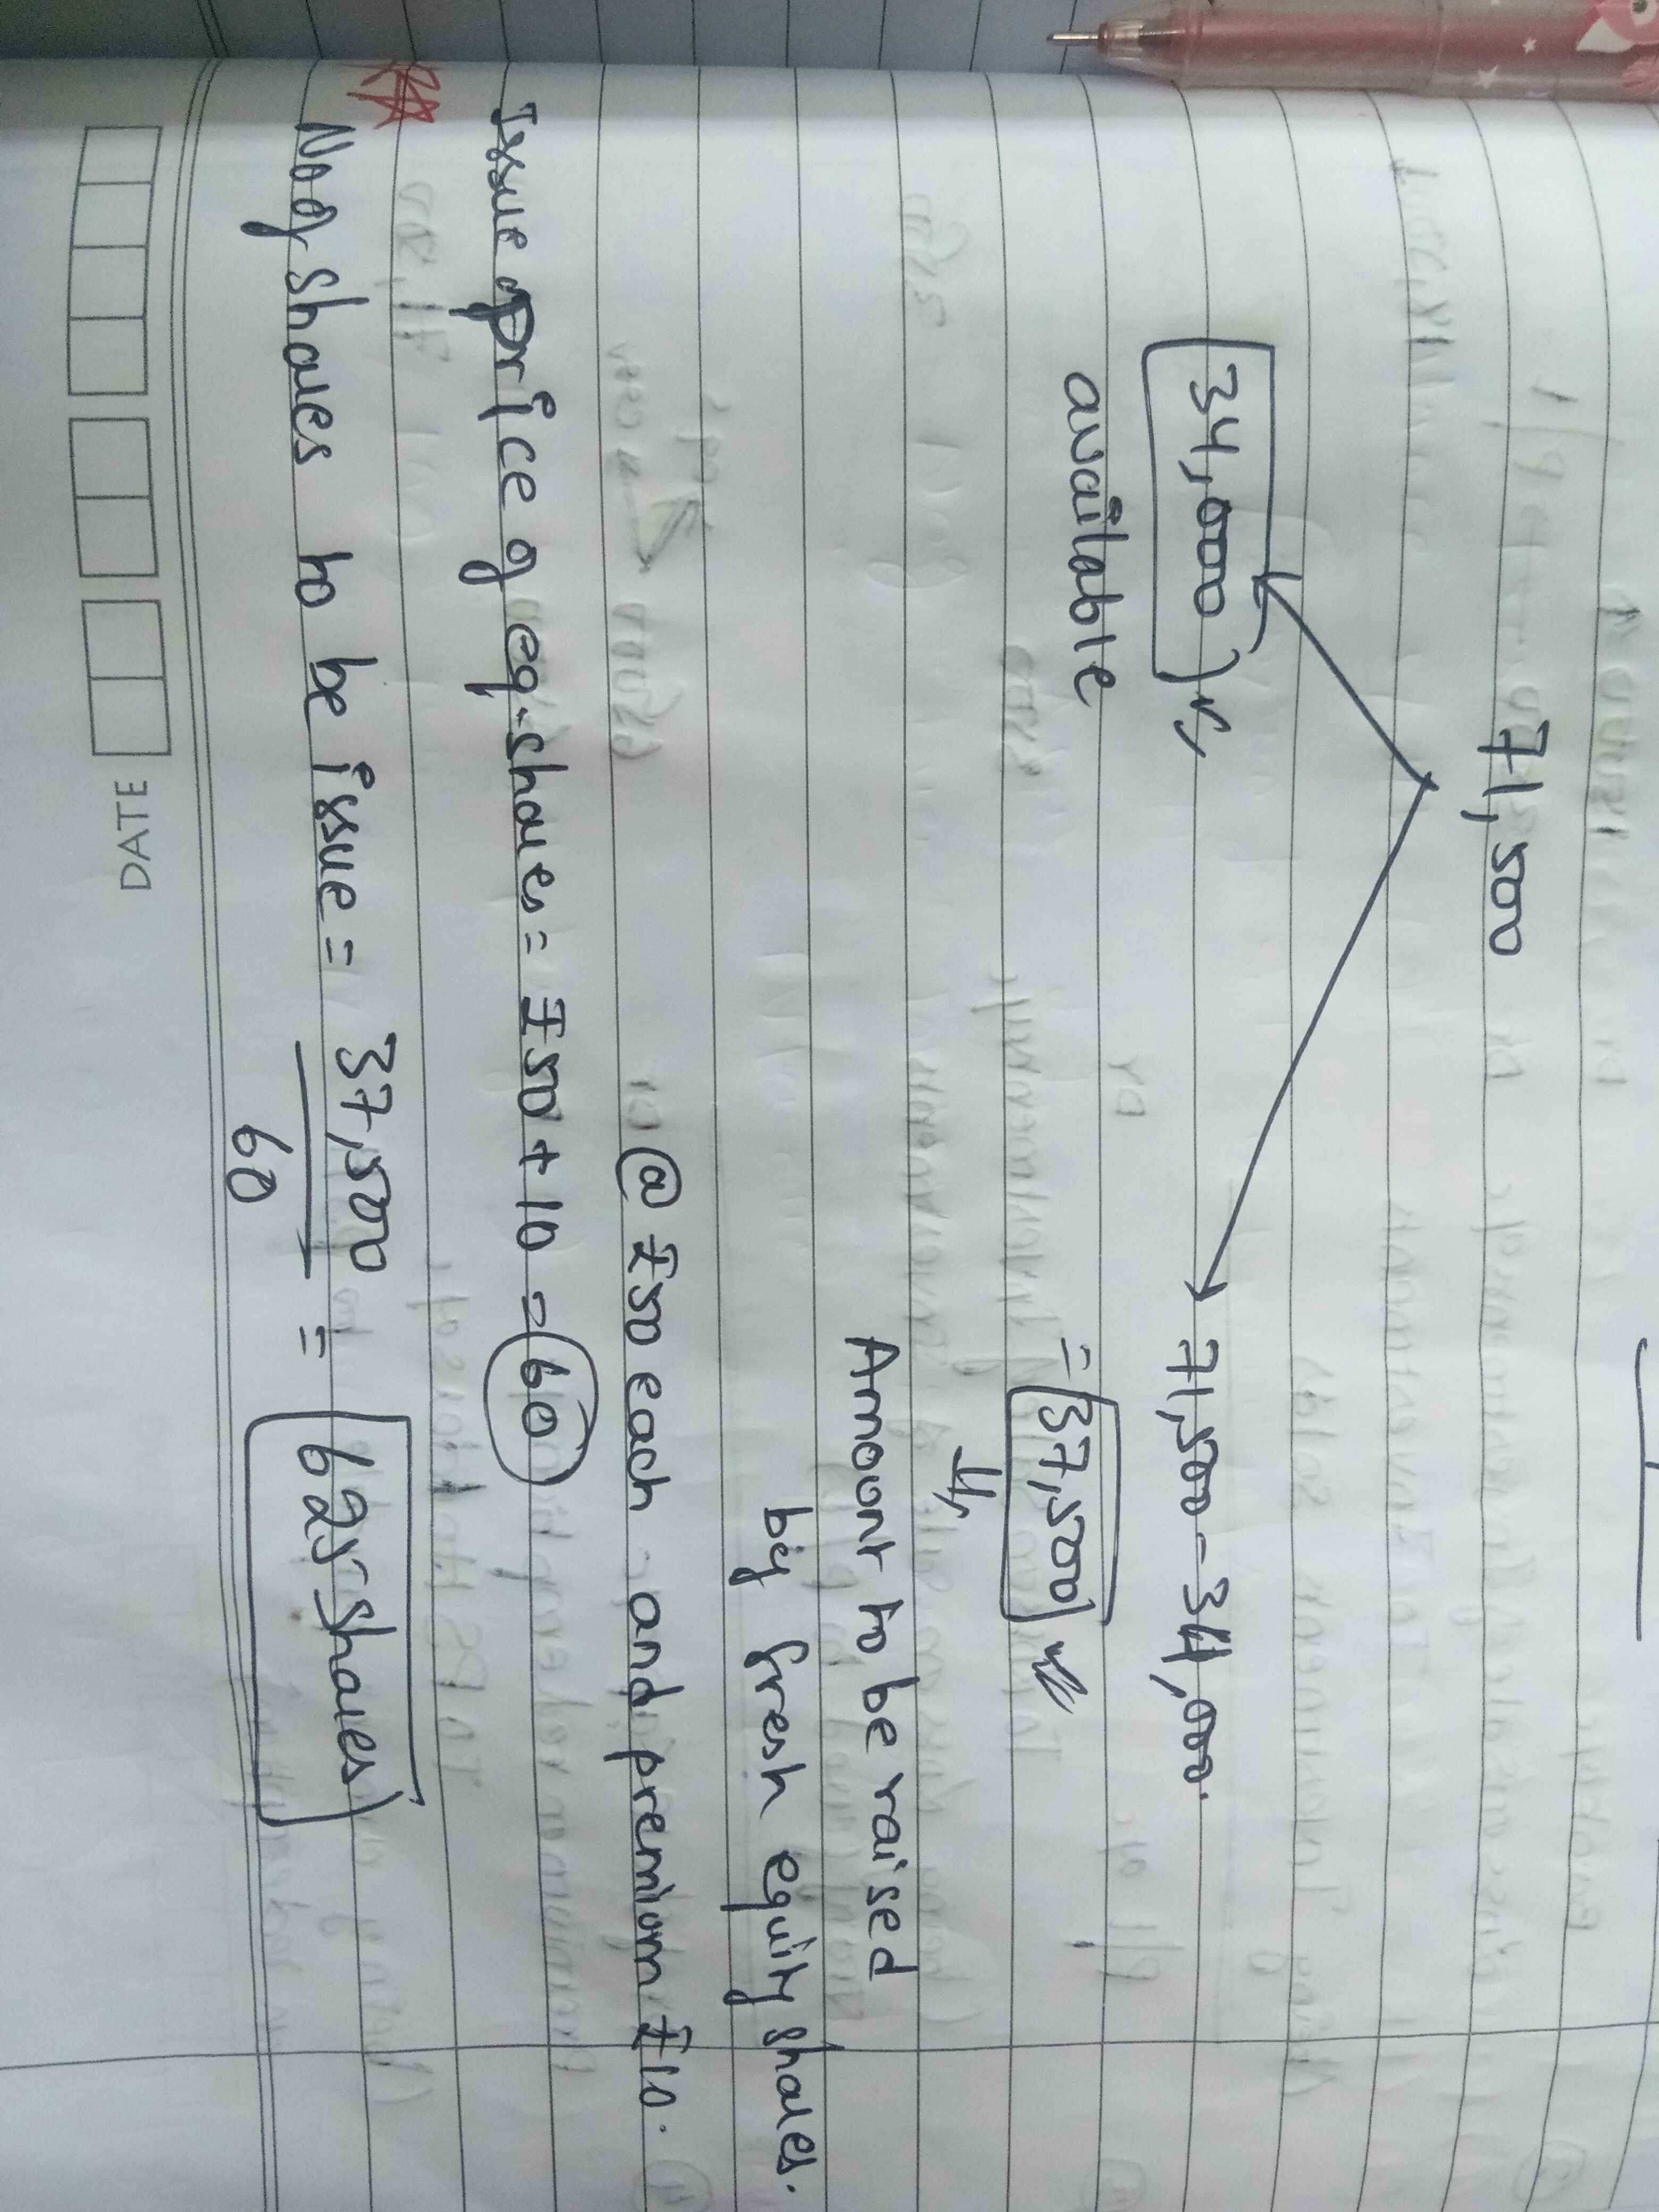 71,500
34,000
available
71,500 - 34,000.
= 37,500
Amount to be raised
by fresh equity shares.
@ ₹50 each and premium ₹10.
Issue price of eq. shares = ₹50 + 10 = 60
No of shares to be issue = 37,500 / 60 = 625 shares
DATE